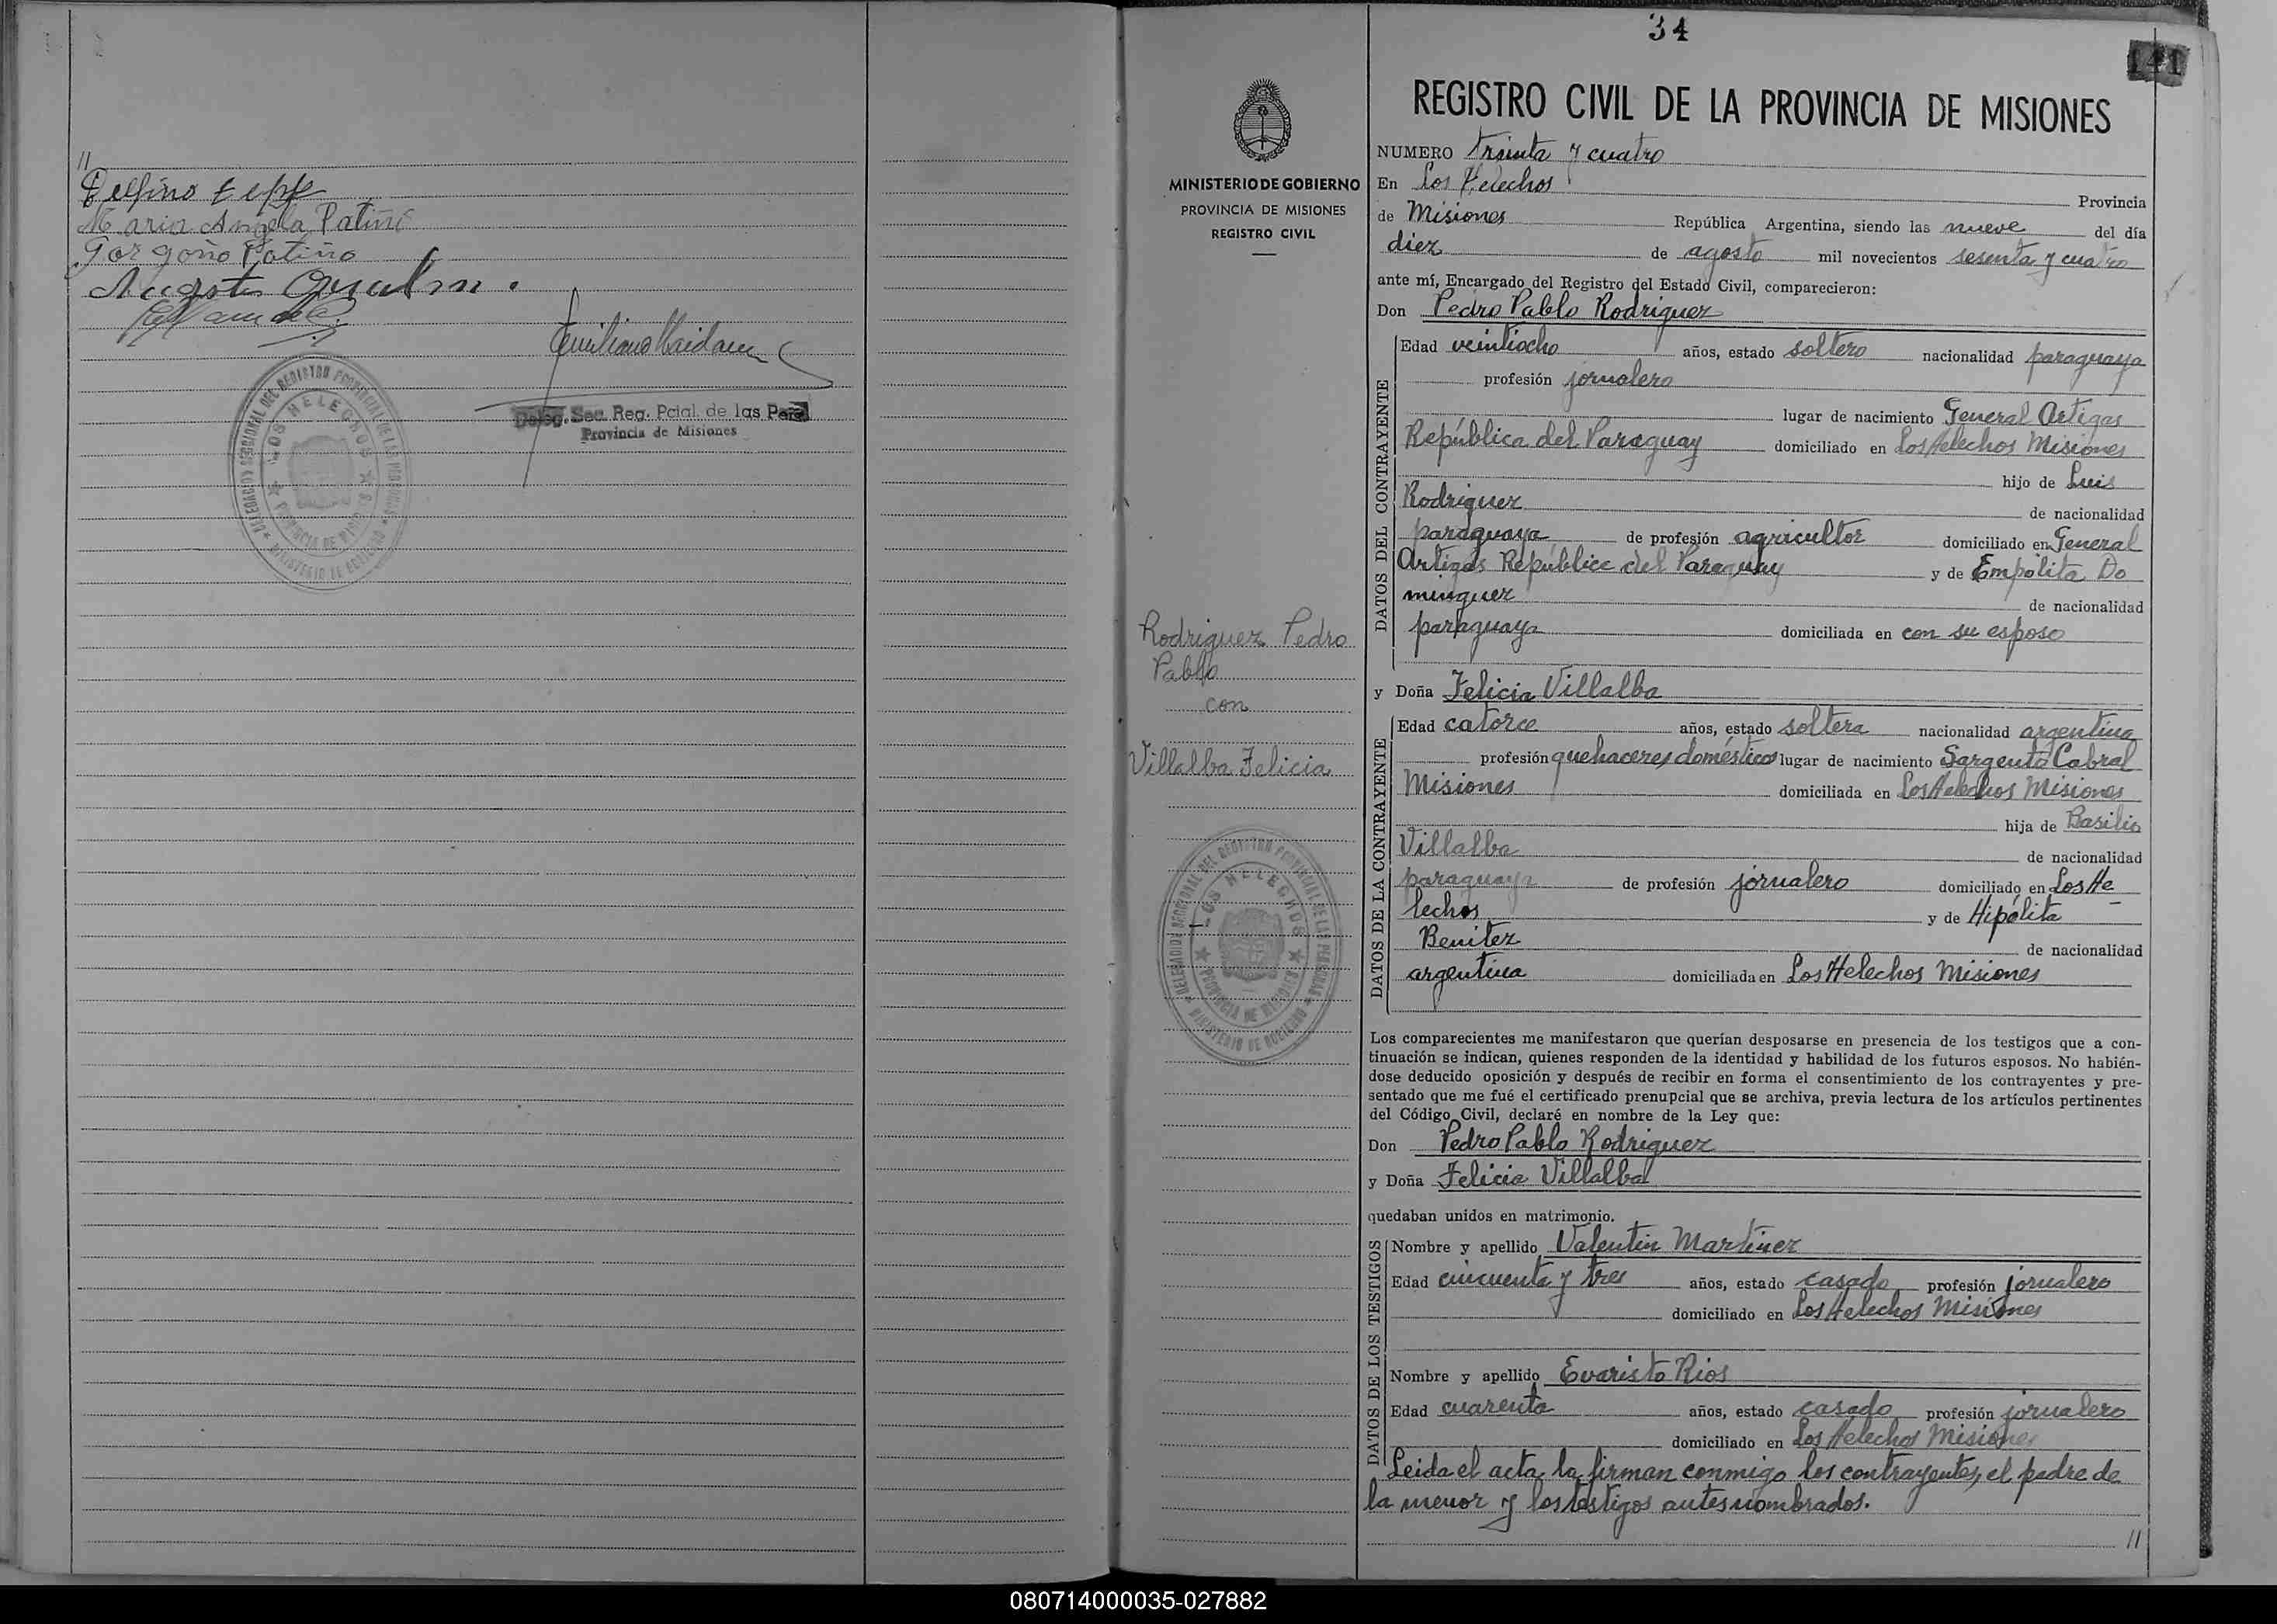 //
Delfino
Maria Angela Patiño
Gorgoño Patiño
Augusto
Emiliano
Deleg. Sec. Reg. Pcial. de las Pers.
Provincia de Misiones
DELEGACION SECCIONAL DEL REGISTRO PROVINCIAL DE LAS PERSONAS
LOS HELECHOS
PROVINCIA DE MISIONES
MINISTERIO DE GOBIERNO
34
141
MINISTERIO DE GOBIERNO
PROVINCIA DE MISIONES
REGISTRO CIVIL
Rodriguez Pedro
Pablo
con
Villalba Felicia
DELEGACION SECCIONAL DEL REGISTRO PROVINCIAL DE LAS PERSONAS
LOS HELECHOS
PROVINCIA DE MISIONES
MINISTERIO DE GOBIERNO
REGISTRO CIVIL DE LA PROVINCIA DE MISIONES
NUMERO Treinta y cuatro
En Los Helechos Provincia
de Misiones República Argentina, siendo las nueve del día
diez de agosto mil novecientos sesenta y cuatro
ante mí, Encargado del Registro del Estado Civil, comparecieron:
Don Pedro Pablo Rodriguez
DATOS DEL CONTRAYENTE
Edad veintiocho años, estado soltero nacionalidad paraguaya
profesión jornalero
lugar de nacimiento General Artigas
República del Paraguay domiciliado en Los Helechos Misiones
hijo de Luis
Rodriguez de nacionalidad
paraguaya de profesión agricultor domiciliado en General
Artigas República del Paraguay y de Empolita Do
minguez de nacionalidad
paraguaya domiciliada en con su esposo
y Doña Felicia Villalba
DATOS DE LA CONTRAYENTE
Edad catorce años, estado soltera nacionalidad argentina
profesión quehaceres domésticos lugar de nacimiento Sargento Cabral
Misiones domiciliada en Los Helechos Misiones
hija de Basilio
Villalba de nacionalidad
paraguaya de profesión jornalero domiciliado en Los He
lechos y de Hipólita
Benitez de nacionalidad
argentina domiciliada en Los Helechos Misiones
Los comparecientes me manifestaron que querían desposarse en presencia de los testigos que a con-
tinuación se indican, quienes responden de la identidad y habilidad de los futuros esposos. No habién-
dose deducido oposición y después de recibir en forma el consentimiento de los contrayentes y pre-
sentado que me fué el certificado prenupcial que se archiva, previa lectura de los artículos pertinentes
del Código Civil, declaré en nombre de la Ley que:
Don Pedro Pablo Rodriguez
y Doña Felicia Villalba
quedaban unidos en matrimonio.
DATOS DE LOS TESTIGOS
Nombre y apellido Valentin Martinez
Edad cincuenta y tres años, estado casado profesión jornalero
domiciliado en Los Helechos Misiones
Nombre y apellido Evaristo Rios
Edad cuarenta años, estado casado profesión jornalero
domiciliado en Los Helechos Misiones
Leida el acta, la firman conmigo los contrayentes, el padre de
la menor y los testigos antes nombrados.
//
080714000035-027882